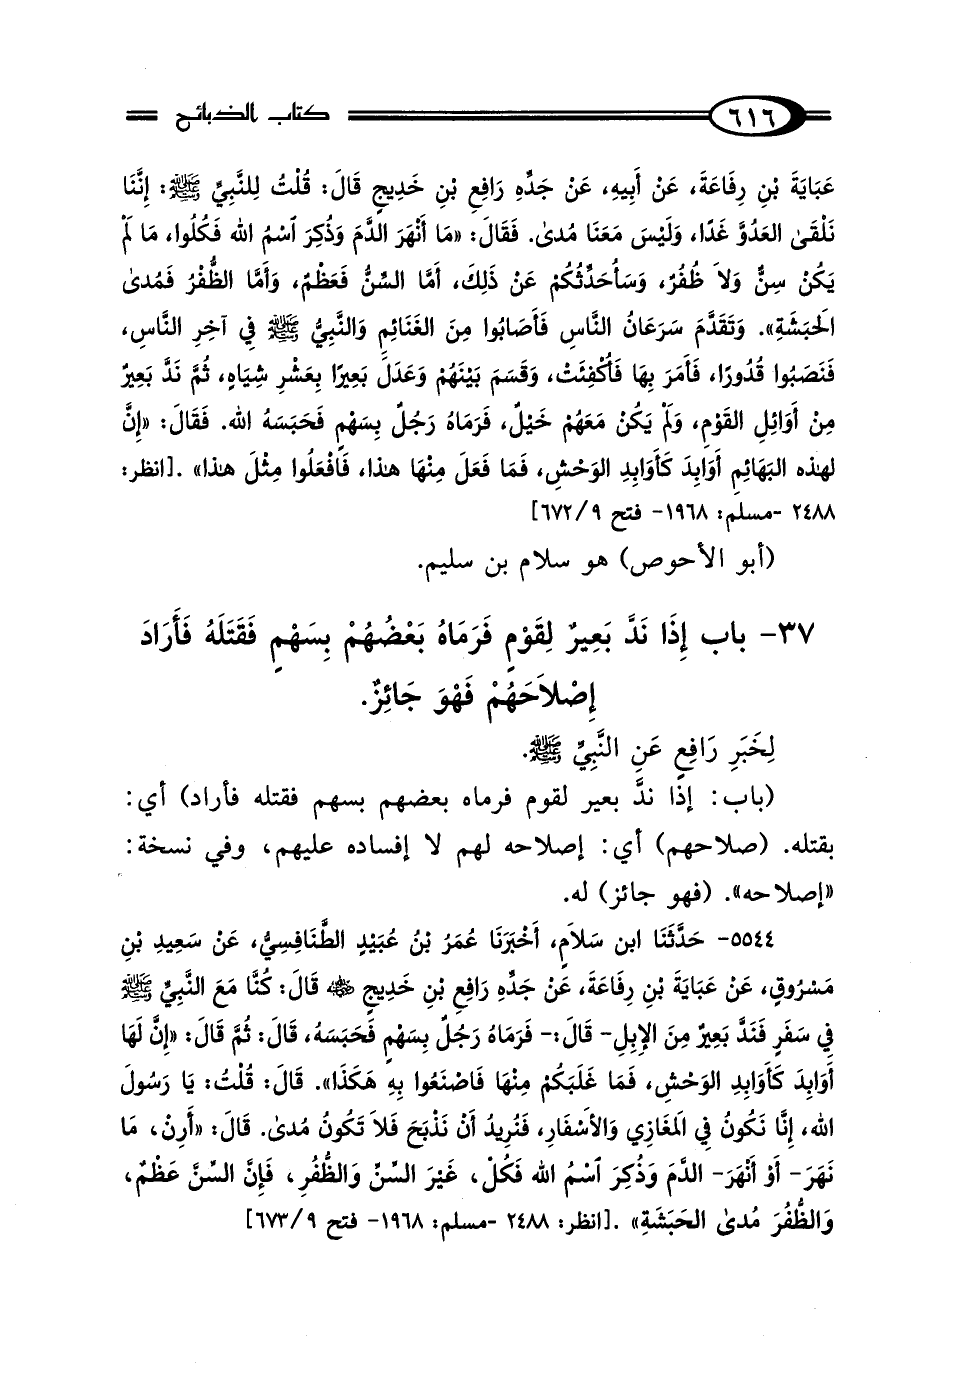 ٦١٦ كتاب الذبائح
عَبَايَةَ بْنِ رِفَاعَةَ، عَنْ أَبِيهِ، عَنْ جَدِّهِ رَافِعِ بْنِ خَدِيجٍ قَالَ: قُلْتُ لِلنَّبِيِّ ﷺ: إِنَّنَا
نَلْقَىٰ العَدُوَّ غَدًا، وَلَيْسَ مَعَنَا مُدىٰ. فَقَالَ: «مَا أَنْهَرَ الدَّمَ وَذُكِرَ ٱسْمُ الله فَكُلُوا، مَا لَمْ
يَكُنْ سِنٌّ وَلاَ ظُفُرٌ، وَسَأُحَدِّثُكُمْ عَنْ ذَلِكَ، أَمَّا السِّنُّ فَعَظْمٌ، وَأَمَّا الظُّفُرُ فَمُدىٰ
الحَبَشَةِ». وَتَقَدَّمَ سَرَعَانُ النَّاسِ فَأَصَابُوا مِنَ الغَنَائِمِ وَالنَّبِيُّ ﷺ فِي آخِرِ النَّاسِ،
فَنَصَبُوا قُدُورًا، فَأَمَرَ بِهَا فَأُكْفِئَتْ، وَقَسَمَ بَيْنَهُمْ وَعَدَلَ بَعِيرًا بِعَشْرِ شِيَاهٍ، ثُمَّ نَدَّ بَعِيرٌ
مِنْ أَوَائِلِ القَوْمِ، وَلَمْ يَكُنْ مَعَهُمْ خَيْلٌ، فَرَمَاهُ رَجُلٌ بِسَهْمٍ فَحَبَسَهُ الله. فَقَالَ: «إِنَّ
لهٰذه البَهَائِمِ أَوَابِدَ كَأَوَابِدِ الوَحْشِ، فَمَا فَعَلَ مِنْهَا هٰذا، فَافْعَلُوا مِثْلَ هٰذا» .[انظر:
٢٤٨٨ -مسلم: ١٩٦٨- فتح ٩/ ٦٧٢]
(أبو الأحوص) هو سلام بن سليم.
٣٧- باب إِذَا نَدَّ بَعِيرٌ لِقَوْمٍ فَرَمَاهُ بَعْضُهُمْ بِسَهْمٍ فَقَتَلَهُ فَأَرَادَ
إِصْلاَحَهُمْ فَهْوَ جَائِزٌ.
لِخَبَرِ رَافِعٍ عَنِ النَّبِيِّ ﷺ.
(باب: إذا ندَّ بعير لقوم فرماه بعضهم بسهم فقتله فأراد) أي:
بقتله. (صلاحهم) أي: إصلاحه لهم لا إفساده عليهم، وفي نسخة:
«إصلاحه». (فهو جائز) له.
٥٥٤٤- حَدَّثَنَا ابن سَلاَمٍ، أَخْبَرَنَا عُمَرُ بْنُ عُبَيْدٍ الطَّنَافِسِيُّ، عَنْ سَعِيدِ بْنِ
مَسْرُوقٍ، عَنْ عَبَايَةَ بْنِ رِفَاعَةَ، عَنْ جَدِّهِ رَافِعِ بْنِ خَدِيجٍ رضي الله عنه قَالَ: كُنَّا مَعَ النَّبِيِّ ﷺ
فِي سَفَرٍ فَنَدَّ بَعِيرٌ مِنَ الإِبِلِ- قَالَ:- فَرَمَاهُ رَجُلٌ بِسَهْمٍ فَحَبَسَهُ، قَالَ: ثُمَّ قَالَ: «إِنَّ لَهَا
أَوَابِدَ كَأَوَابِدِ الوَحْشِ، فَمَا غَلَبَكُمْ مِنْهَا فَاصْنَعُوا بِهِ هَكَذَا». قَالَ: قُلْتُ: يَا رَسُولَ
الله، إِنَّا نَكُونُ فِي المَغَازِي وَالأَسْفَارِ، فَنُرِيدُ أَنْ نَذْبَحَ فَلاَ تَكُونُ مُدىٰ. قَالَ: «أَرِنْ، مَا
نَهَرَ- أَوْ أَنْهَرَ- الدَّمَ وَذُكِرَ ٱسْمُ الله فَكُلْ، غَيْرَ السِّنِّ وَالظُّفُرِ، فَإِنَّ السِّنَّ عَظْمٌ،
وَالظُّفُرَ مُدىٰ الحَبَشَةِ» .[انظر: ٢٤٨٨ -مسلم: ١٩٦٨- فتح ٩/ ٦٧٣]